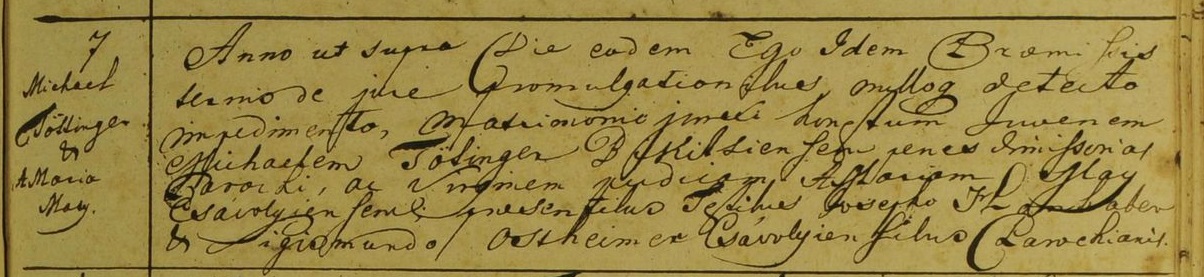 7
Michael
Töttinger
&
A. Maria
May.
Anno ut supra Die eodem Ego Idem Præmissis
ter in de jure promulgationibus, nulloq detecto
impedimento, Matrimonio junxi honestum Juvenem
Michaelem Tötinger penes Dimissorias
Parochi, ac Virginem pudicam A Mariam May
Csávolyiensem, presentibus Testibus Josepho
& Sigismundo Ostheimer Csávolyiensibus Parochianis.